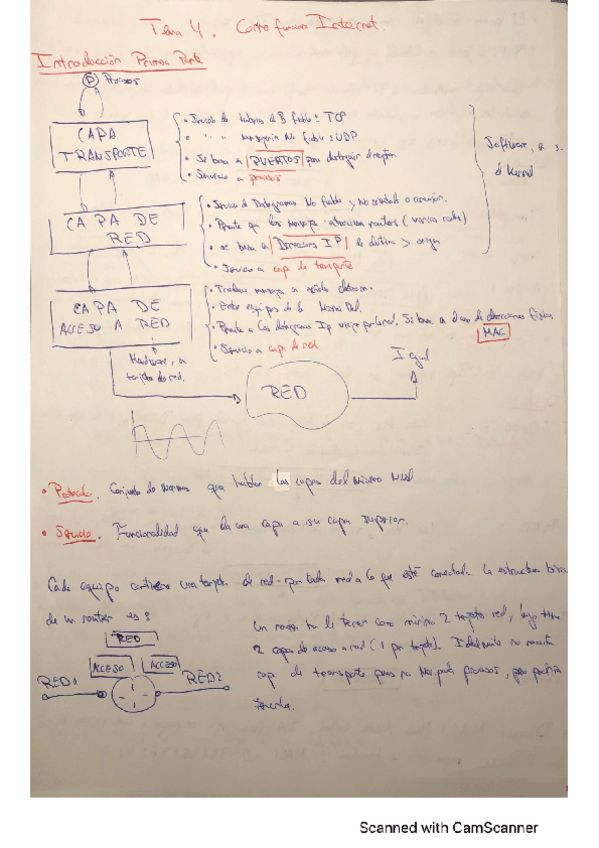 Tema 4. Como funciona Internet.
Introducción Primera Parte
P Procesos
CAPA
TRANSPORTE
• Servicio de B fiable: TCP
• " " No fiable: UDP.
• Se basa en PUERTOS para distinguir
• Servicio a procesos
Software, en el S.
el Kernel
CAPA DE
RED
• Servicio de Datagramas No fiable y No orientado a conexión.
• Permite que los mensajes atraviesen routers (varias redes)
• se basa en Direcciones IP de destino y origen
• Servicio a capa de transporte
CAPA DE
ACCESO A RED
• Traduce mensajes a
• Entre equipos de la misma Red.
• Permite a los datagramas Ip viajar por la red. Se basa en el uso de direcciones físicas
MAC
• Servicio a capa de red
Hardware, la
tarjeta de red.
RED
Igual
• Protocolo. Conjunto de normas que hablan las capas del mismo nivel
• Servicio. Funcionalidad que da una capa a su capa superior.
Cada equipo contiene una tarjeta de red por cada red a la que esté conectado. La estructura básica
de un router es:
RED
ACCESO
ACCESO
RED1
RED2
Un router ha de tener como mínimo 2 tarjetas red, luego tiene
2 capas de acceso a red (1 por tarjeta). Idealmente no necesita
capa de transporte pues no procesos, pero podría
tenerla.
Scanned with CamScanner